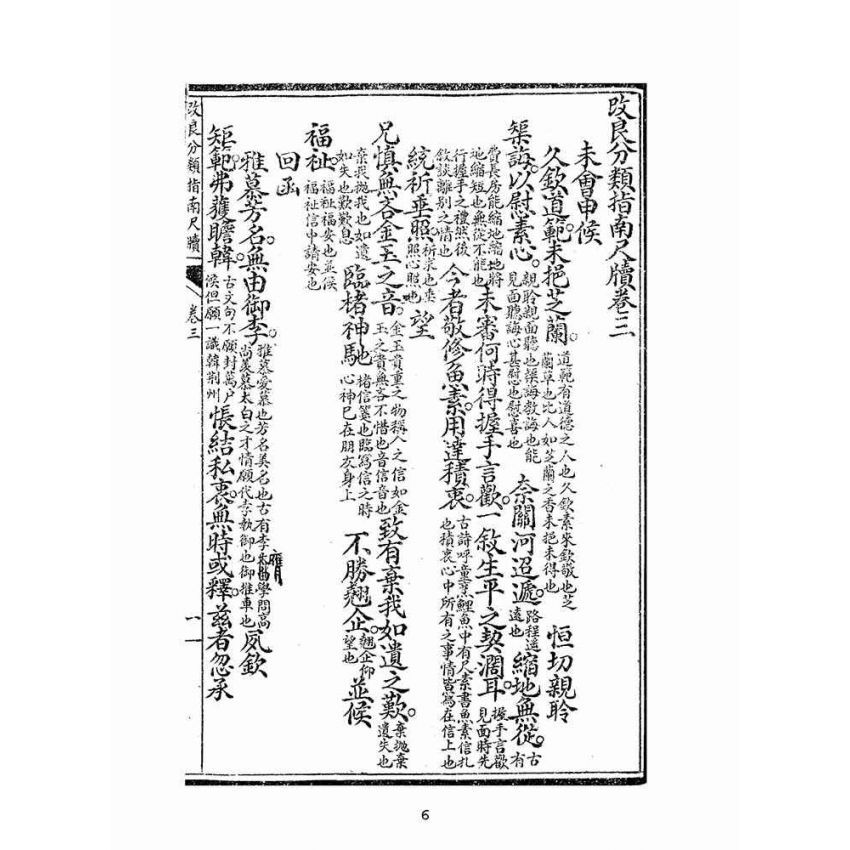 改良分類指南尺牘卷三
未會申候
久欽道範。未挹芝蘭。道範有道德之人也久欽素來欽敬也芝蘭草也比人如芝蘭之香未挹未得也恒切親聆
榘誨。以慰素心。親聆親面聽也榘誨敎誨也能見面聽誨心甚慰也慰喜也奈關河迢遞。路程遙遠也縮地無從。古有
費長房能縮地脈地將地縮短也無從不能也未審何時得握手言歡。一敘生平之契濶耳。握手言歡見面時先
行握手之禮然後敘談離別之情也今者敬修魚素。用達積衷。古詩呼童烹鯉魚中有尺素書魚素信扎也積衷心中所有之事情皆寫在信上也
統祈垂照。祈求也垂照心照也望
兄慎無吝金玉之音。金玉貴重之物稱人之信如金玉之貴無吝不惜也音信音也致有棄我如遺之歎。棄拋棄遺失也
棄我拋我也如遺如失也歎歎息臨楮神馳。楮信箋也臨寫信之時心神已在朋友身上不勝翹企。翹企仰望也並候
福祉。福祉福安也並候福祉信中請安也
回函
雅慕芳名。無由御李。雅慕愛慕也芳名美名也古有李膺學問高尚羨慕太白之才情願代李執御也御推車也夙欽
矩範。弗獲瞻韓。古文句不願封萬戶侯但願一識韓荊州悵結私衷。無時或釋。茲者忽承
改良分類指南尺牘
卷三
一
6